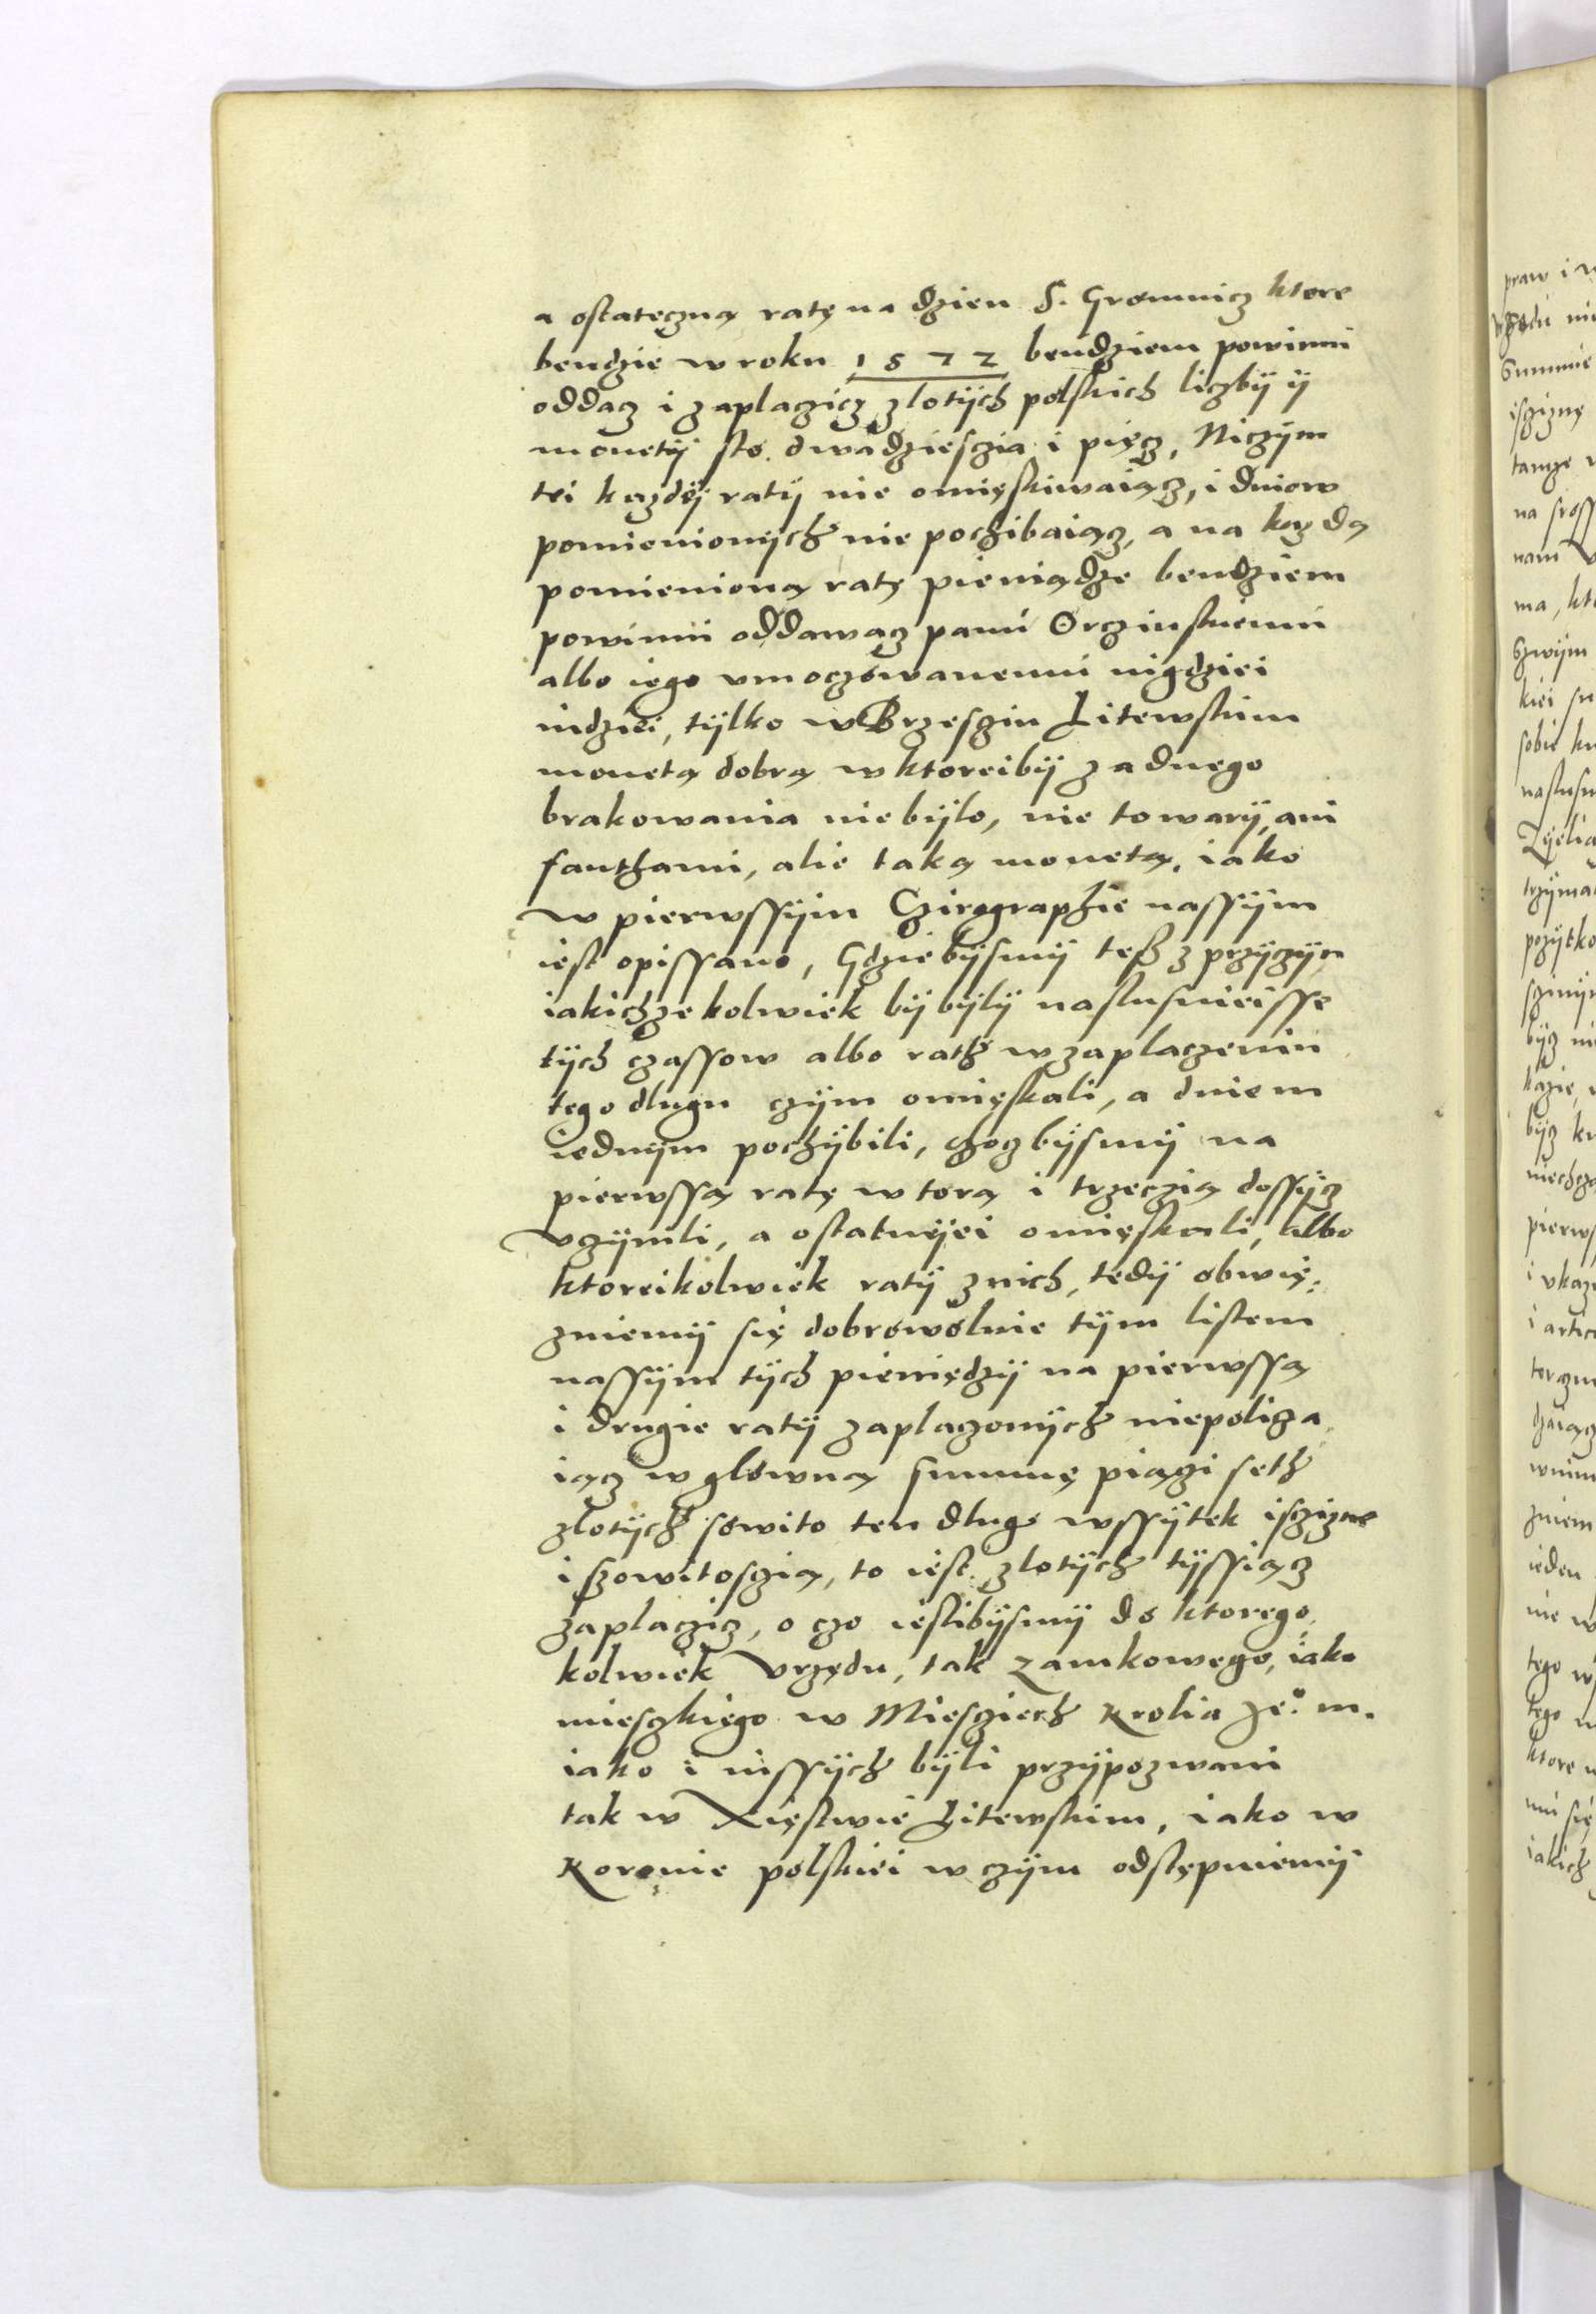 a ostateczną ratę na dzien S. Gromnicz ktore
bendzie w roku 1572 bendziem powinni
oddacz i zaplaczicz zlotÿch polskich liczbÿ ÿ
monetÿ sto dwadziesczia i pięcz, Niczÿm
tei kazdeÿ ratÿ nie omięskiwaiącz, i dniow
pomienionÿch nie pochibaiącz, a na kazdą
pomienioną ratę pieniądze bendziem
powinni oddawacz panu Orzinskiemu
albo iego vmoczowanemu nigdziei
indziei, tÿlko w Brzesziu Litewskim
monetą dobrą w ktoreibÿ zadnego
brakowania niebÿlo, nie towarÿ, ani
fanthami, alie taką monetą, iako
w pierwssÿm Czirographie nassÿm
iest opissano, Gdziebÿsmÿ tesz z przÿczÿn
iakichzekolwiek bÿ bÿlÿ naslusnieisse
tÿch czassow albo rath w zaplaczeniu
tego dlugu czÿm omięskali, a dniem
iednÿm pochÿbili, choczbÿsmÿ na
pierwssą ratę wtorą i trzeczią dossÿcz
vczÿnili, a ostatnÿei omięskali, albo
ktoreikolwiek ratÿ znich, tedÿ obwię:
zuiemÿ się dobrowolnie tÿm listem
nassÿm tÿch pieniędzÿ na pierwssą
i drugie ratÿ zaplaczonÿch niepolicza
iącz w glowną summę piączi seth
zlotÿch sowito ten dlug wssÿtek isczizne
i szowitosczią, to iest zlotÿch tÿssiącz
zaplaczicz, o czo iestlibÿsmÿ do ktorego
kolwiek vrzędu, tak zamkowego, iako
miesczkiego w Miesciech Krolia Je° m.
iako i inssÿch bÿli przÿpozwani
tak w Xięstwie Litewskim, iako w
Koronie polskiei w czÿm odstępuiemÿ